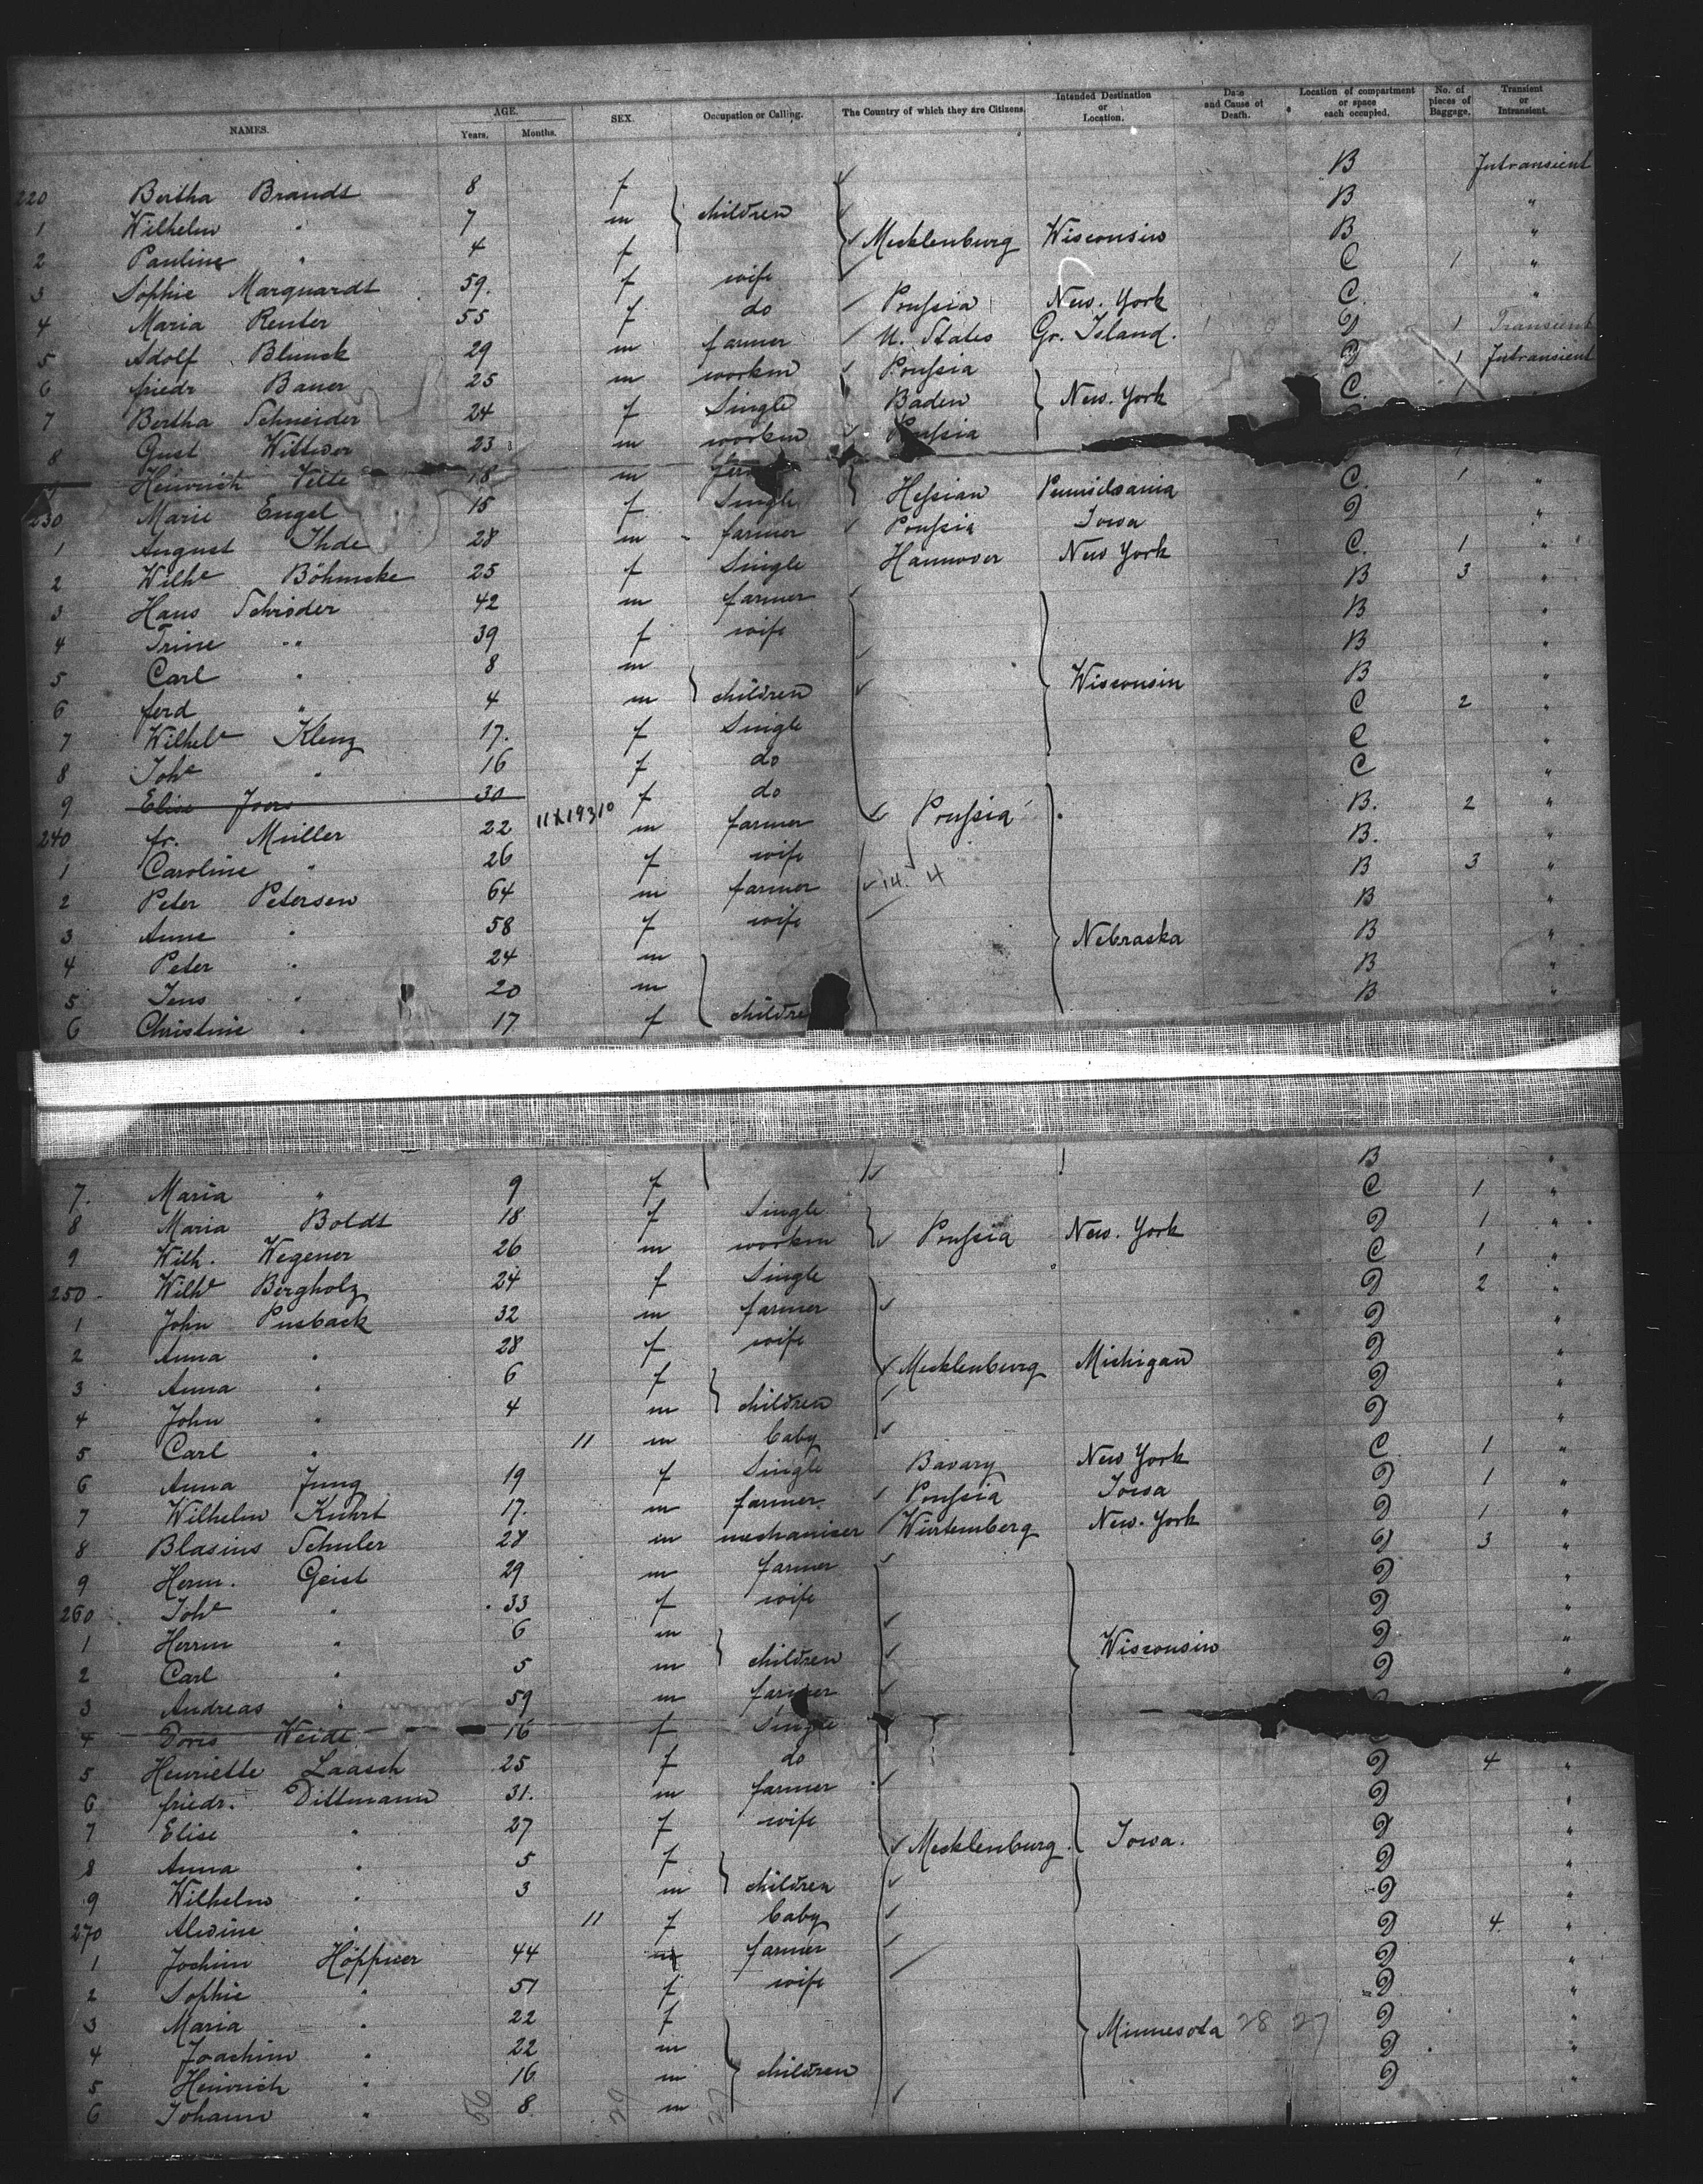 NAMES. AGE. Years. Months. SEX. Occupation or Calling. The Country of which they are Citizens. Intended Destination or Location. Date and Cause of Death. Location of compartment or space each occupied. No. of pieces of Baggage. Transient or Intransient.
220 Bertha Brandt 8 f B Intransient
1 Wilhelm " 7 m } children B "
2 Pauline " 4 f Mecklenburg Wisconsin B "
3 Sophie Marquardt 59. f wife C 1 "
4 Maria Reuter 55 f do Preussia New. York C. "
5 Adolf Blunck 29 m farmer U. States Gr. Island. D 1 Transient
6 friedr Bauer 25 m workm Preussia D 1 Intransient
7 Bertha Schneider 24 f Single Baden } New. York C. 1 "
8 Gust Wittwer 23 m workm Preussia
Heinrich Vette 18 m C. 1 "
230 Marie Engel 15 f Single Hessian Pennsilvania D "
1 August Thde 28 m farmer Preussia Iowa C. 1 "
2 Wilhe Böhmcke 25 f Single Hannover New York B 3 "
3 Hans Schröder 42 m farmer B "
4 Trine " 39 f wife B "
5 Carl " 8 m B "
6 ferd " 4 m } children Wisconsin C 2 "
7 Wilhele Klenz 17. f Single C "
8 Johe " 16 f do C "
9 Elise Joers 30 f do B. 2 "
240 fr. Müller 22 11X19310 m farmer Preussia B. "
1 Caroline " 26 f wife B 3 "
2 Peter Petersen 64 m farmer 14. 4 B "
3 Anne " 58 f wife B "
4 Peter " 24 m Nebraska B "
5 Jens " 20 m B "
6 Christine " 17 f childre
B "
7. Maria " 9 f C 1 "
8 Maria Boldt 18 f Single D 1 "
9 Wilh. Wegener 26 m workm Preussia New. York C 1 "
250 Wilhe Bergholz 24 f Single D 2 "
1 John Pusback 32 m farmer D "
2 Anna " 28 f wife D "
3 Anna " 6 f Mecklenburg Michigan D "
4 John " 4 m } children D "
5 Carl " 11 m baby C 1 "
6 Anna Jung 19 f Single Bavary New York D 1 "
7 Wilhelm Kuhrt 17. m farmer Preussia Iowa D 1 "
8 Blasius Schuler 28 m mechaniser Würtemberg New. York D 3 "
9 Herm. Geist 29 m farmer D "
260 Johe " 33 f wife D "
1 Herrm " 6 m D "
2 Carl " 5 m } children Wisconsin D "
3 Andreas " 59 m farmer
4 Doris Weidt 16 f Single
5 Henriette Laasch 25 f do D 4 "
6 friedr. Dittmann 31. m farmer D "
7 Elise " 27 f wife D "
8 Anna " 5 f Mecklenburg. Iowa. D "
9 Wilhelm " 3 m } children D "
270 Alwine " 11 f baby D 4 "
1 Jochim Höppner 44 m farmer D "
2 Sophie " 51 f wife D "
3 Maria " 22 f D "
4 Joachim " 22 m Minnesota 28 27 D "
5 Heinrich " 16 m } children D "
6 Johann " 8 m
56 29 27